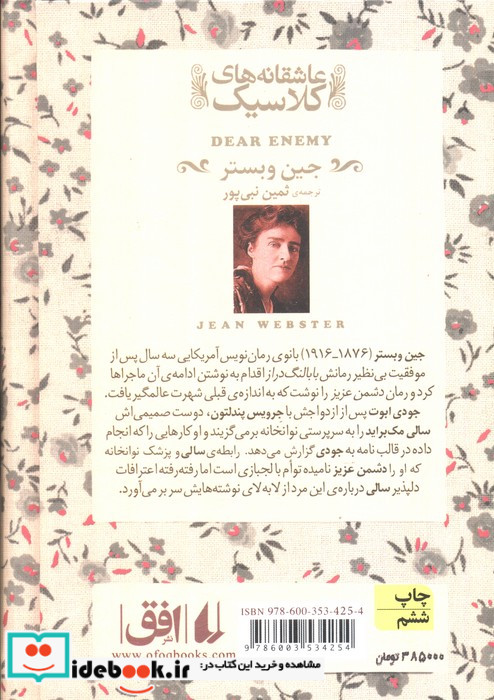 عاشقانه‌های
کلاسیک
DEAR ENEMY
جین وبستر
ترجمه‌ی ثمین نبی‌پور
JEAN WEBSTER
جین وبستر (۱۸۷۶-۱۹۱۶) بانوی رمان‌نویس آمریکایی سه سال پس از
موفقیت بی‌نظیر رمانش بابالنگ‌دراز اقدام به نوشتن ادامه‌ی آن ماجراها
کرد و رمان دشمن عزیز را نوشت که به اندازه‌ی قبلی شهرت عالمگیر یافت.
جودی ابوت پس از ازدواجش با جرویس پندلتون، دوست صمیمی‌اش
سالی مک‌براید را به سرپرستی نوانخانه برمی‌گزیند و او کارهایی را که انجام
داده در قالب نامه به جودی گزارش می‌دهد. رابطه‌ی سالی و پزشک نوانخانه
که او را دشمن عزیز نامیده توأم با لجبازی است اما رفته‌رفته اعترافات
دلپذیر سالی درباره‌ی این مرد از لابه‌لای نوشته‌هایش سر بر می‌آورد.
چاپ
ششم
۳۸۵۰۰۰ تومان
ISBN 978-600-353-425-4
9 786003 534254
نشر افق
www.ofoqbooks.com
idebook.ir
مشاهده و خرید این کتاب در: